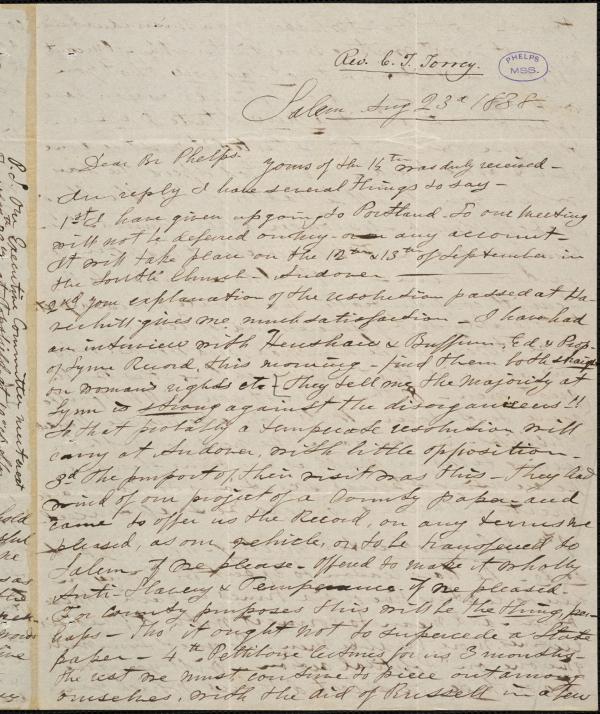 Rev. C. T. Torrey.
PHELPS
MSS.
Salem Aug 23d 1838.
Dear Br Phelps. yours of the 14th was duly received -
In reply I have several things to say -
1st I have given up going to Portland. So our meeting
will not be deferred on my - or on any account -
It will take place on the 12th & 13th of September in
the South Church - Andover
2nd your explanation of the resolution passed at Ha-
verhill gives me much satisfaction - I have had
an interview with Henshaw & Buffum, Ed. & Prop-
of Lynn Record, this morning - find them both straight
on woman's rights etc [They tell me the majority at
Lynn is strong against the disorganizers!!
So that probably a temperate resolution will
carry at Andover, with little opposition -
3d The purport of their visit was this - They had
wind of our project of a County paper - and
came to offer us the Record, on any terms we
pleased, as our vehicle, or to be transferred to
Salem, if we please - offered to make it wholly
Anti-Slavery & Temperance if we pleased.
For county purposes this will be the thing per-
haps - Tho' it ought not to supercede a State
paper - 4th Pettibone labors for us 3 months
the rest we must continue to piece out among
ourselves, with the aid of Russell in a few
P.S. Our Executive Committee met